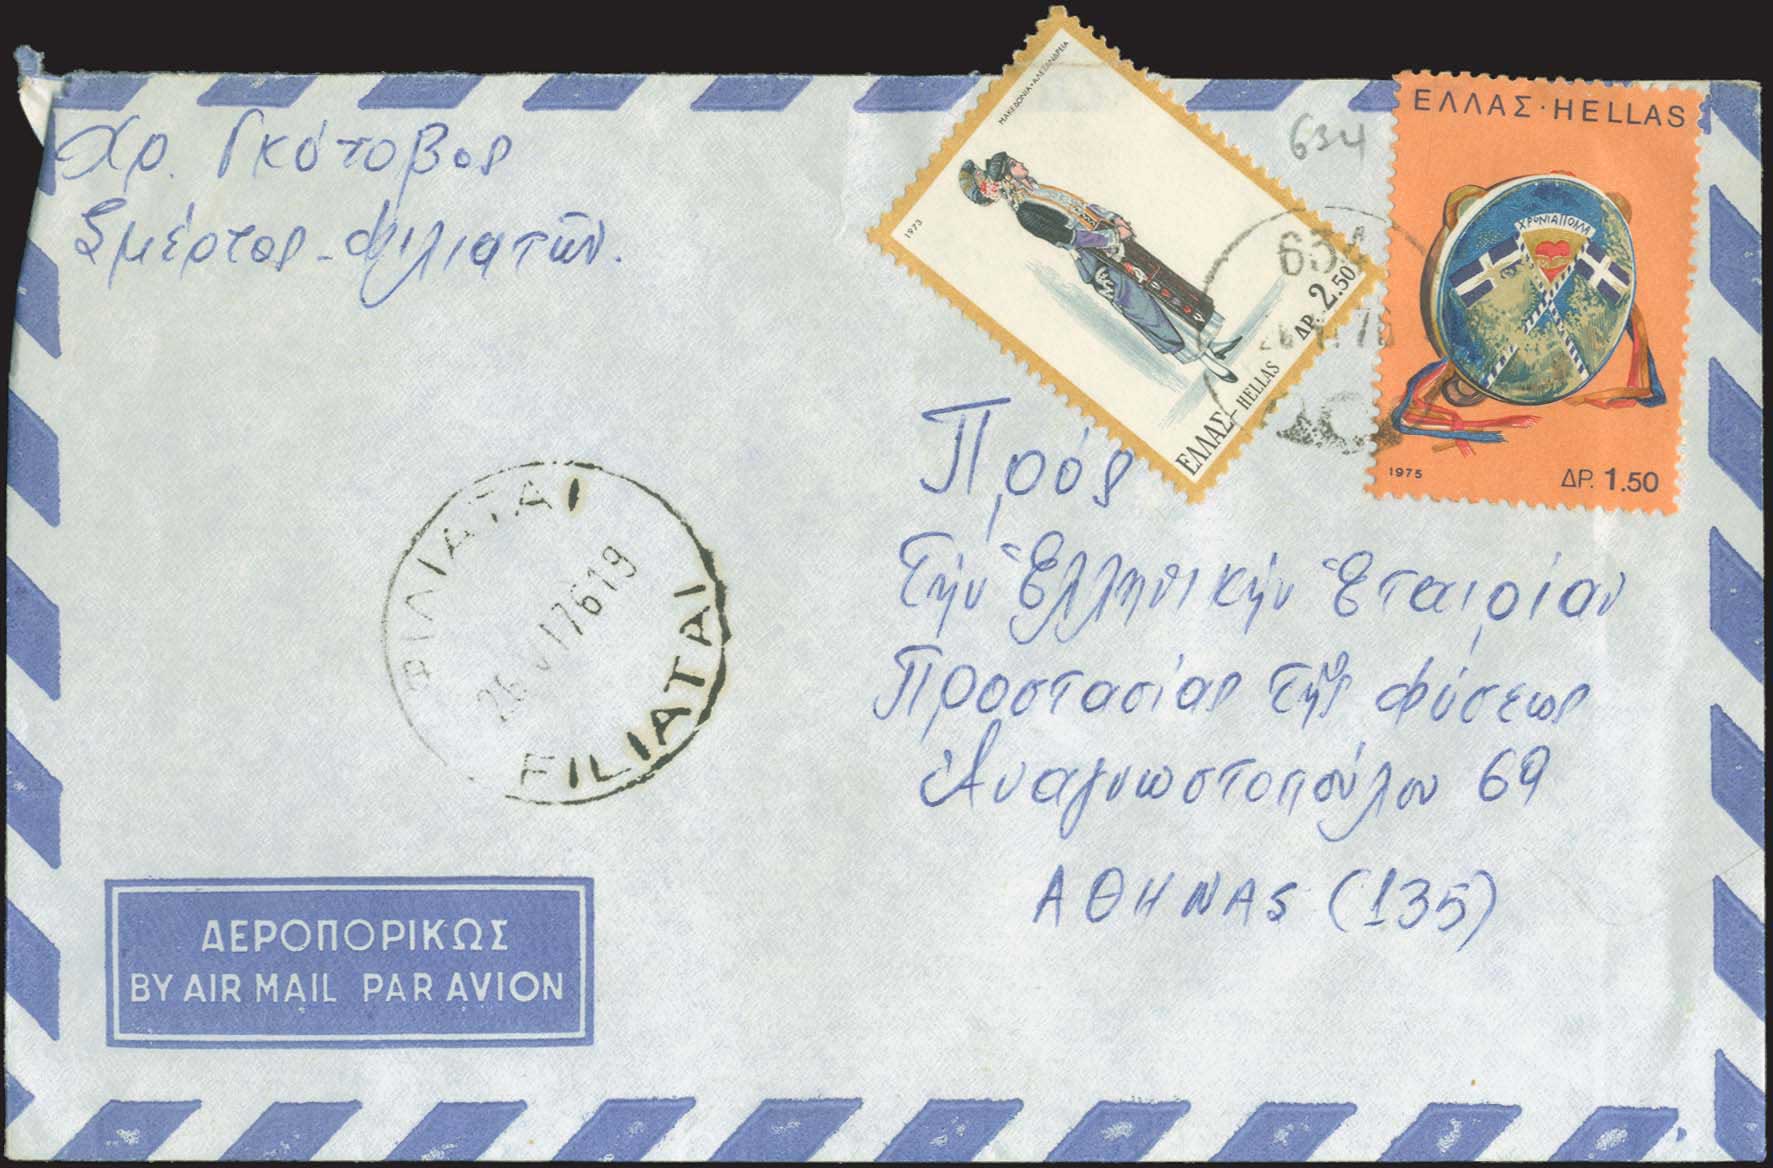 Χρ. Γκότοβος
Σμέρτος - Φιλιατῶν.
ΜΑΚΕΔΟΝΙΑ • ΑΛΕΞΑΝΔΡΕΙΑ
1973
ΔΡ. 2.50
ΕΛΛΑΣ - HELLAS
634
634
ΕΛΛΑΣ · HELLAS
ΧΡΟΝΙΑ ΠΟΛΛΑ
1975
ΔΡ. 1.50
Πρός
Τήν Ἑλληνικήν Ἑταιρίαν
Προστασίας τῆς Φύσεως
Ἀναγνωστοπούλου 69
ΑΘΗΝΑΣ (135)
ΦΙΛΙΑΤΑΙ
26 VI 76 19
FILIATAI
ΑΕΡΟΠΟΡΙΚΩΣ
BY AIR MAIL PAR AVION